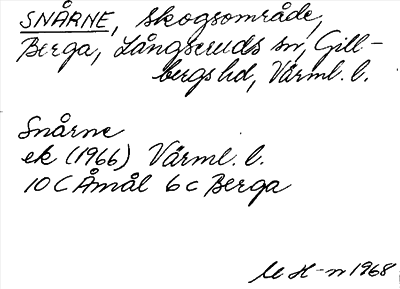 SNÅRNE, skogsområde,
Berga, Långseruds sn, Gill-
bergs hd, Värml. l.
Snårne
ek (1966) Värml. l.
10 C Åmål 6 c Berga
M H-n 1968